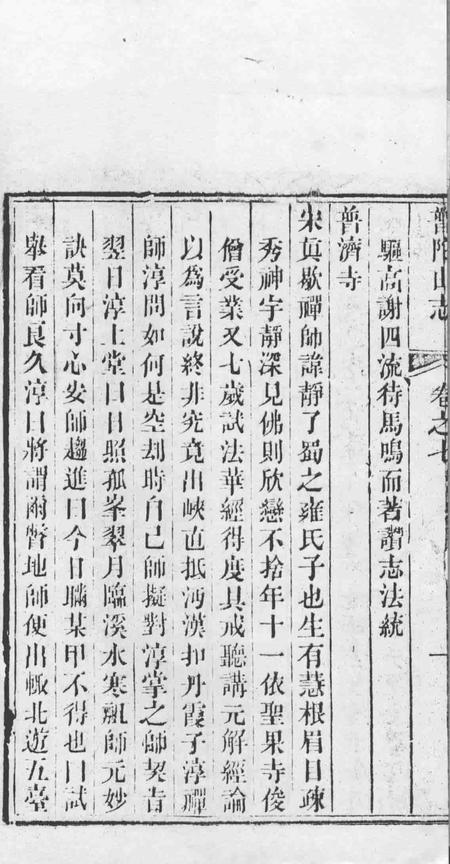 普陀山志 卷之七 一
驅高謝四流待馬鳴而著讚志法統
普濟寺
宋真歇禪師諱靜了蜀之雍氏子也生有慧根眉目疎
秀神宇靜深見佛則欣戀不捨年十一依聖果寺俊
僧受業又七歲試法華經得度具戒聽講元解經論
以為言說終非究竟出峽直抵沔漢扣丹霞子淳禪
師淳問如何是空刼時自己師擬對淳掌之師契旨
翌日淳上堂曰日照孤峯翠月臨溪水寒祖師元妙
訣莫向寸心安師趨進曰今日瞞某甲不得也曰試
舉看師良久淳曰將謂爾瞥地師便出輙北遊五臺